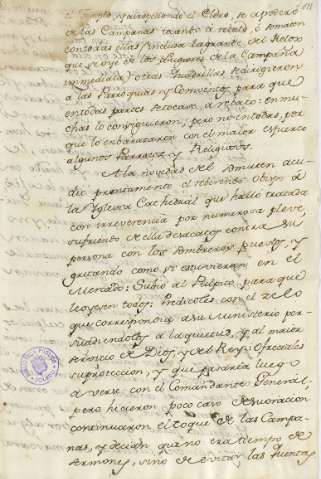 Templo, y atropellando el Clero, se apoderó
de las Campanas tocanto a rebato, ô somaten
con todas ellas, inclusa la grande del Relox
que se oye de los Lugares de la Campaña
inmediata; otras Quadrillas se dirigieron
a las Parroquias, y Conventos, para que
en todas partes se tocare a rebato: en mu-
chas lo consiguieron, pero no en todas, por
que lo embarazaron con el maior esfuerzo
algunos Parrocos, y Religiosos.
A la novedad del somaten acu-
dio prontamente el reverendo Obispo à
la Yglesia Cathedral que halló trocada
con irreverencia por numerosa pleve,
sufriendo de ella desacatos contra su
persona con los sombreros puestos, y
gritando como si estuvieran en el
Mercado: Subió al Pulpito, para que
le oyesen todos; Predicoles con el zelo
que correspondia a su Ministerio per-
suadiendolos a la quietud, y al maior
servicio de Dios, y del Rey: Ofrecioles
su proteccion, y que pasaria luego
a verse con el Comandante General,
pero hicieron poco caso de su oracion
continuaron el toque de las Campa-
nas, y decian que no era tiempo de
sermones, sino de evitar las Quintas